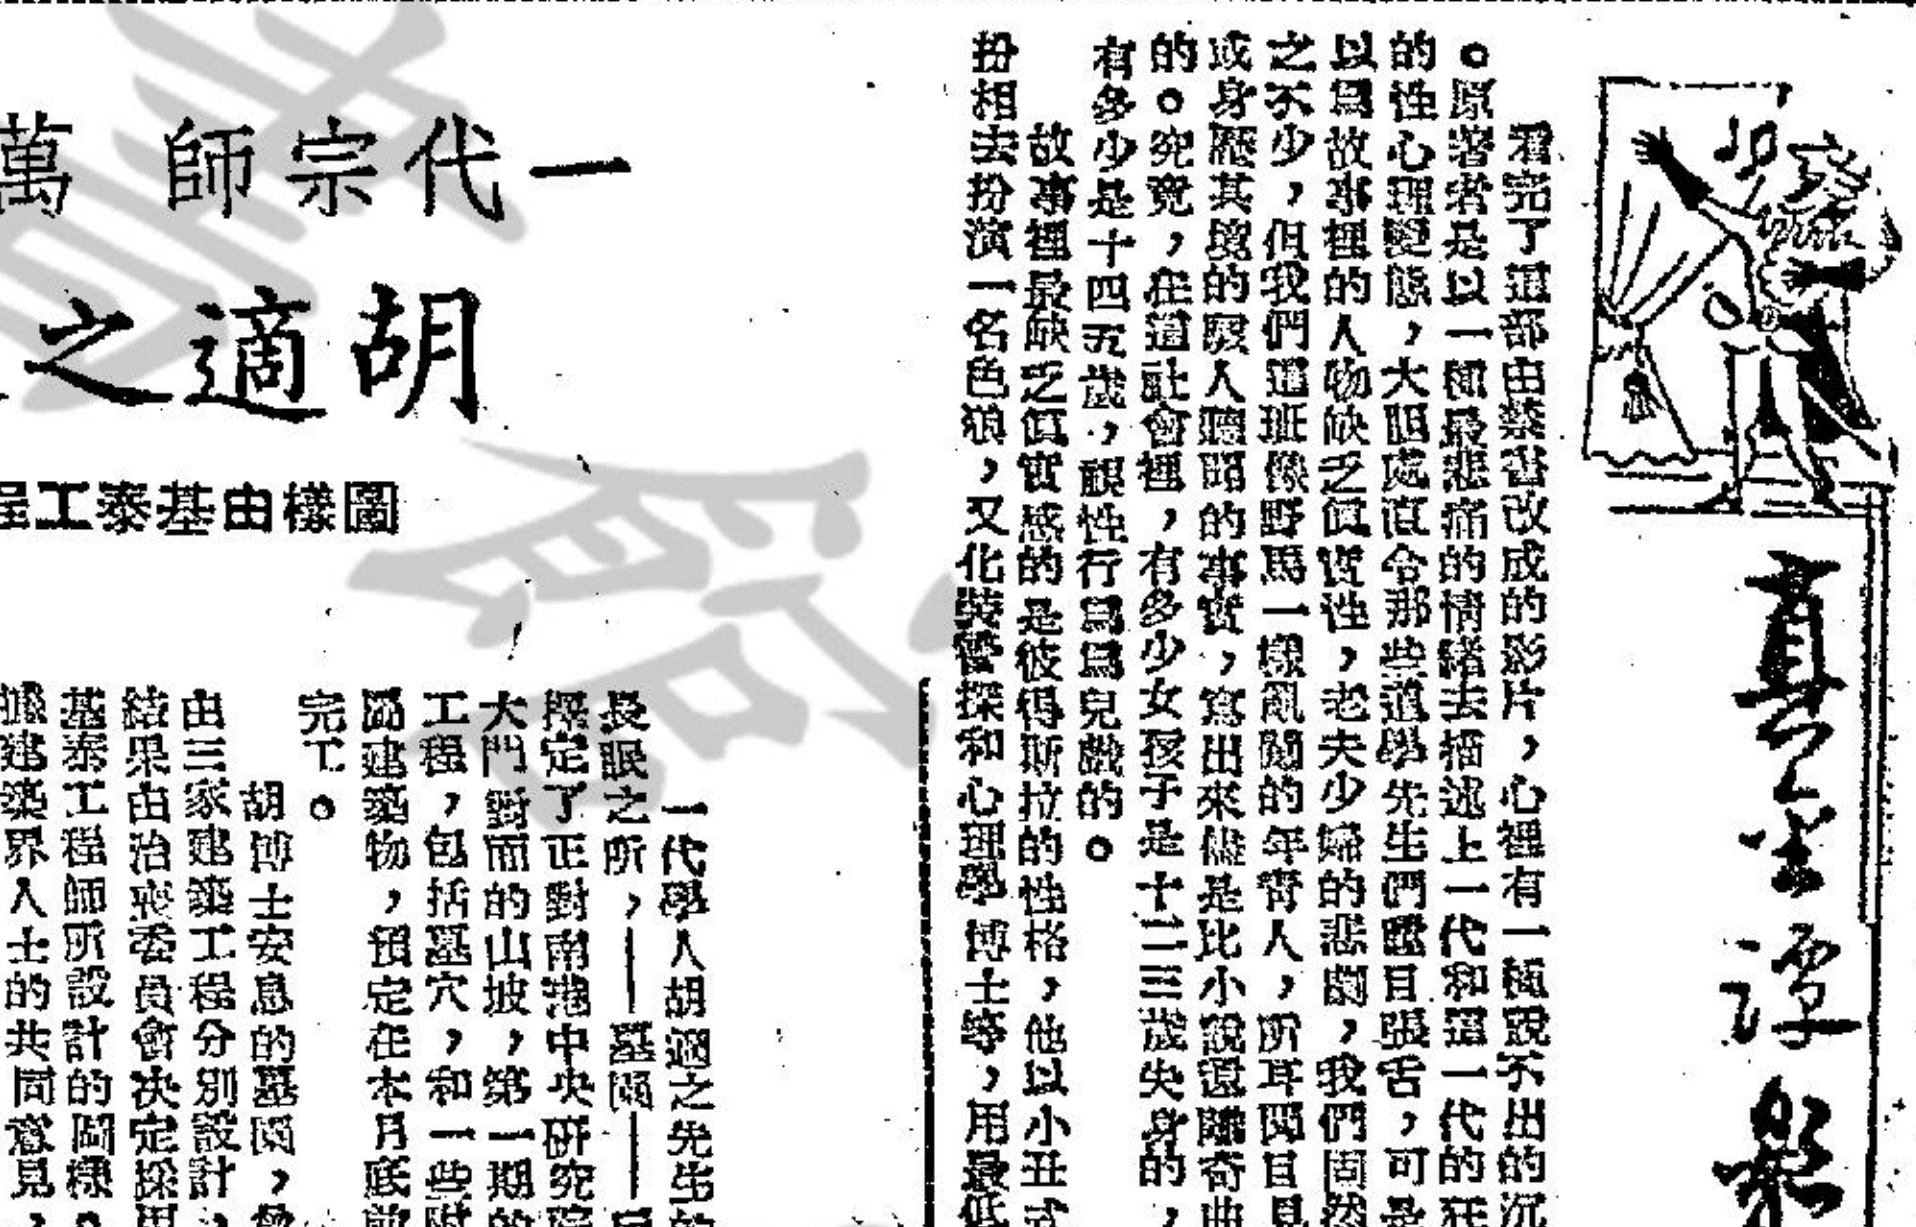 看完了這部由禁書改成的影片，心裡有一種說不出的沉
。原著者是以一種最悲痛的情緒去描述上一代和這一代的狂
的性心理變態，大胆處直令那些道學先生們瞪目張舌，可是
以為故事裡的人物缺乏眞實性，老夫少婦的悲劇，我們固然
之不少，但我們這班像野馬一樣亂闖的年青人，所耳聞目見
或身歷其境的駭人聽聞的事實，寫出來儘是比小說還離奇曲
的。究竟，在這社會裡，有多少女孩子是十二三歲失身的，
有多少是十四五歲，視性行為為兒戲的。
故事裡最缺乏眞實感的是彼得斯拉的性格，他以小丑式
扮相去扮演一名色狼，又化裝警探和心理學博士等，用最低
一代宗師 萬
胡適之
圖樣由基泰工程
一代學人胡適之先生的
長眠之所，——墓園——
擇定了正對南港中央研究院
大門對面的山坡，第一期的
工程，包括墓穴，和一些附
屬建築物，預定在本月底前
完工。
胡博士安息的墓園，曾
由三家建築工程分別設計，
結果由治喪委員會決定採用
基泰工程師所設計的圖樣。
據建築界人士的共同意見，